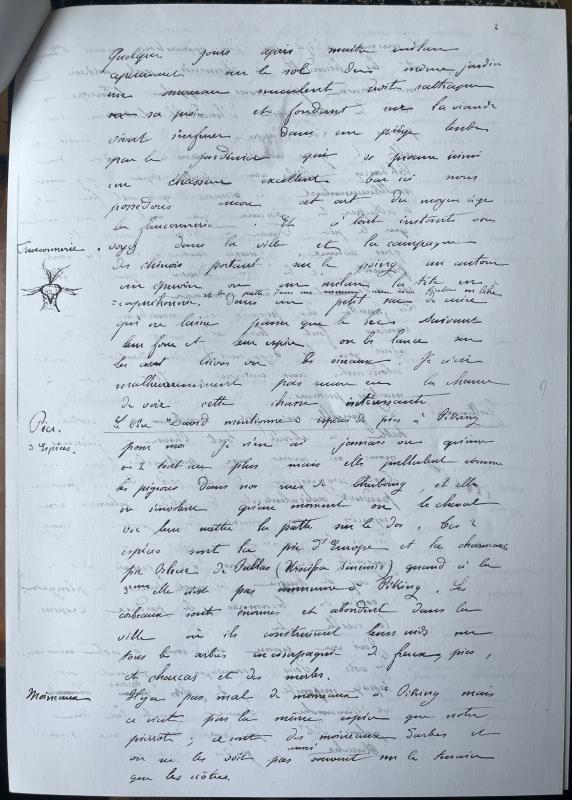 2
Quelques jours après maître milan
apercevant sur le sol du même jardin
un morceau succulent croit rattraper
sa proie et fondant sur la viande
vient s'enferrer dans un piège tendu
par le jardinier qui se procure ainsi
un chasseur excellent car ici nous
possédons encore cet art du moyen âge
la fauconnerie. Et à tout instant vous
Fauconnerie. voyez dans la ville et la campagne
des chinois portant sur le poing un autour
un épervier ou un milan la tête en-
=capuchonnée dans un petit sac de cuire
et la patte dans une
qui ne laisse passer que le bec. Suivant
leur force et leur espèce on les lance sur
les lièvres ou les oiseaux. Je n'ai
malheureusement pas encore eu la chance
de voir cette chasse intéressante
Pies. Le Père David mentionne 3 espèces de pies à Péking
3 Espèces. pour moi je n'en ai jamais vu qu'une
ou 2 tout au plus mais elles pullulent comme
les pigeons dans nos rues à Cherbourg et elles
ne s'envolent qu'au moment où le cheval
va leur mettre la patte sur le dos. Ces 2
espèces sont la pie d'Europe et la charmante
pie Bleue de Pallas ( Sinensis) quand à la
3eme elle n'est pas commune à Péking. Les
corbeaux sont énormes et abondent dans la
ville où ils construisent leurs nids sur
tous les arbres accompagnés de freux, pies,
et choucas et des merles.
Moineaux Il y a pas mal de moineaux à Péking mais
ce n'est pas la même espèce que notre
pierrot ; ce sont des moineaux et
on ne les voit pas aussi souvent sur le terrain
que les nôtres.